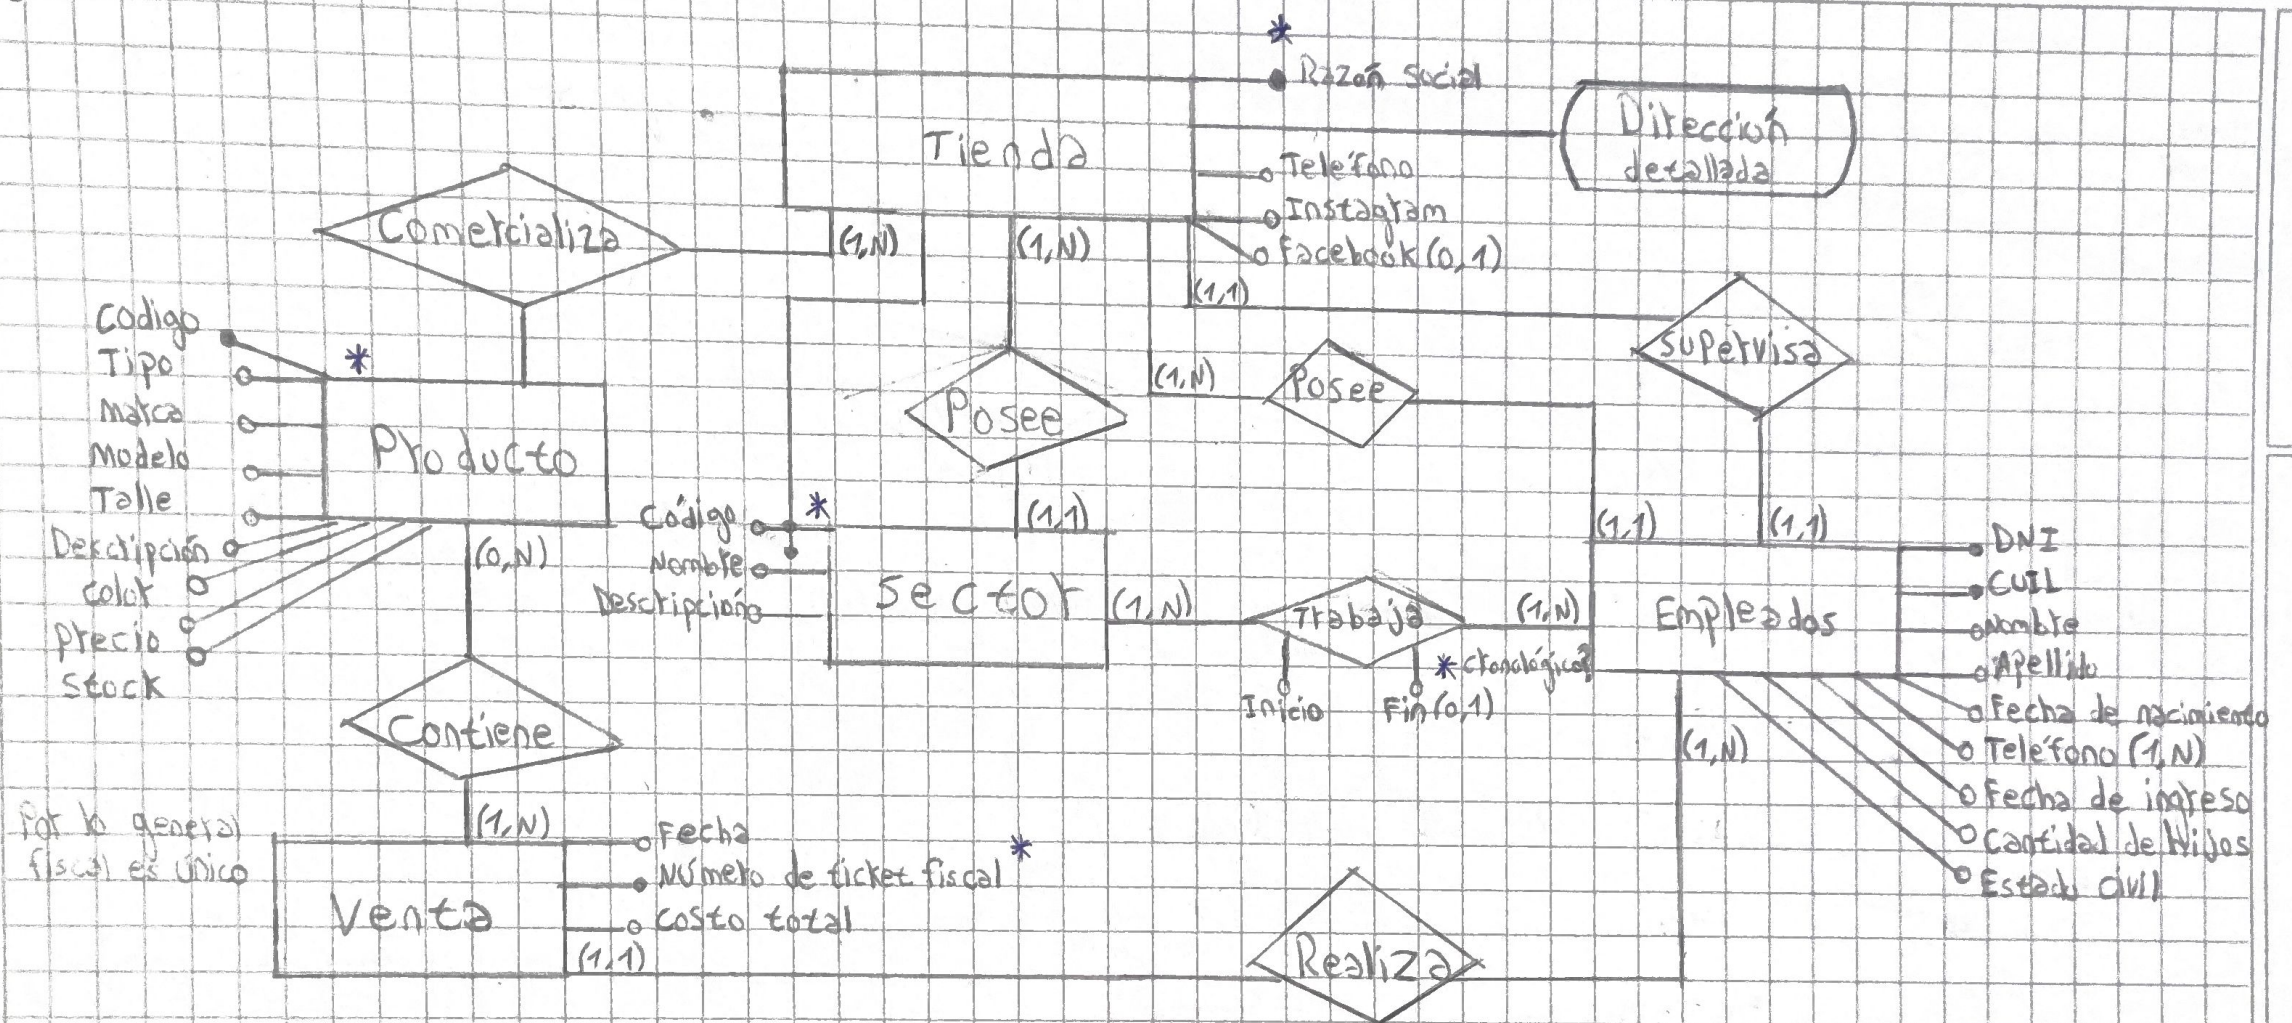 *
Razón Social
Tienda
Dirección
detallada
Teléfono
Instagram
Facebook (0,1)
Comercializa
(1,N)
(1,N)
(1,1)
Supervisa
Posee
(1,N)
Posee
Codigo
Tipo
Marca
Modelo
Talle
Descripción
Color
Precio
Stock
*
Producto
(0,N)
Código
*
Nombre
Descripción
(1,1)
Sector
(1,N)
Trabaja
(1,N)
* Cronológico?
Inicio
Fin (0,1)
(1,1)
(1,1)
Empleados
DNI
CUIL
Nombre
Apellido
Fecha de nacimiento
Teléfono (1,N)
Fecha de ingreso
Cantidad de Hijos
Estado civil
(1,N)
Contiene
(1,N)
Por lo general
fiscal es único
Venta
Fecha
Número de ticket fiscal *
Costo total
(1,1)
Realiza